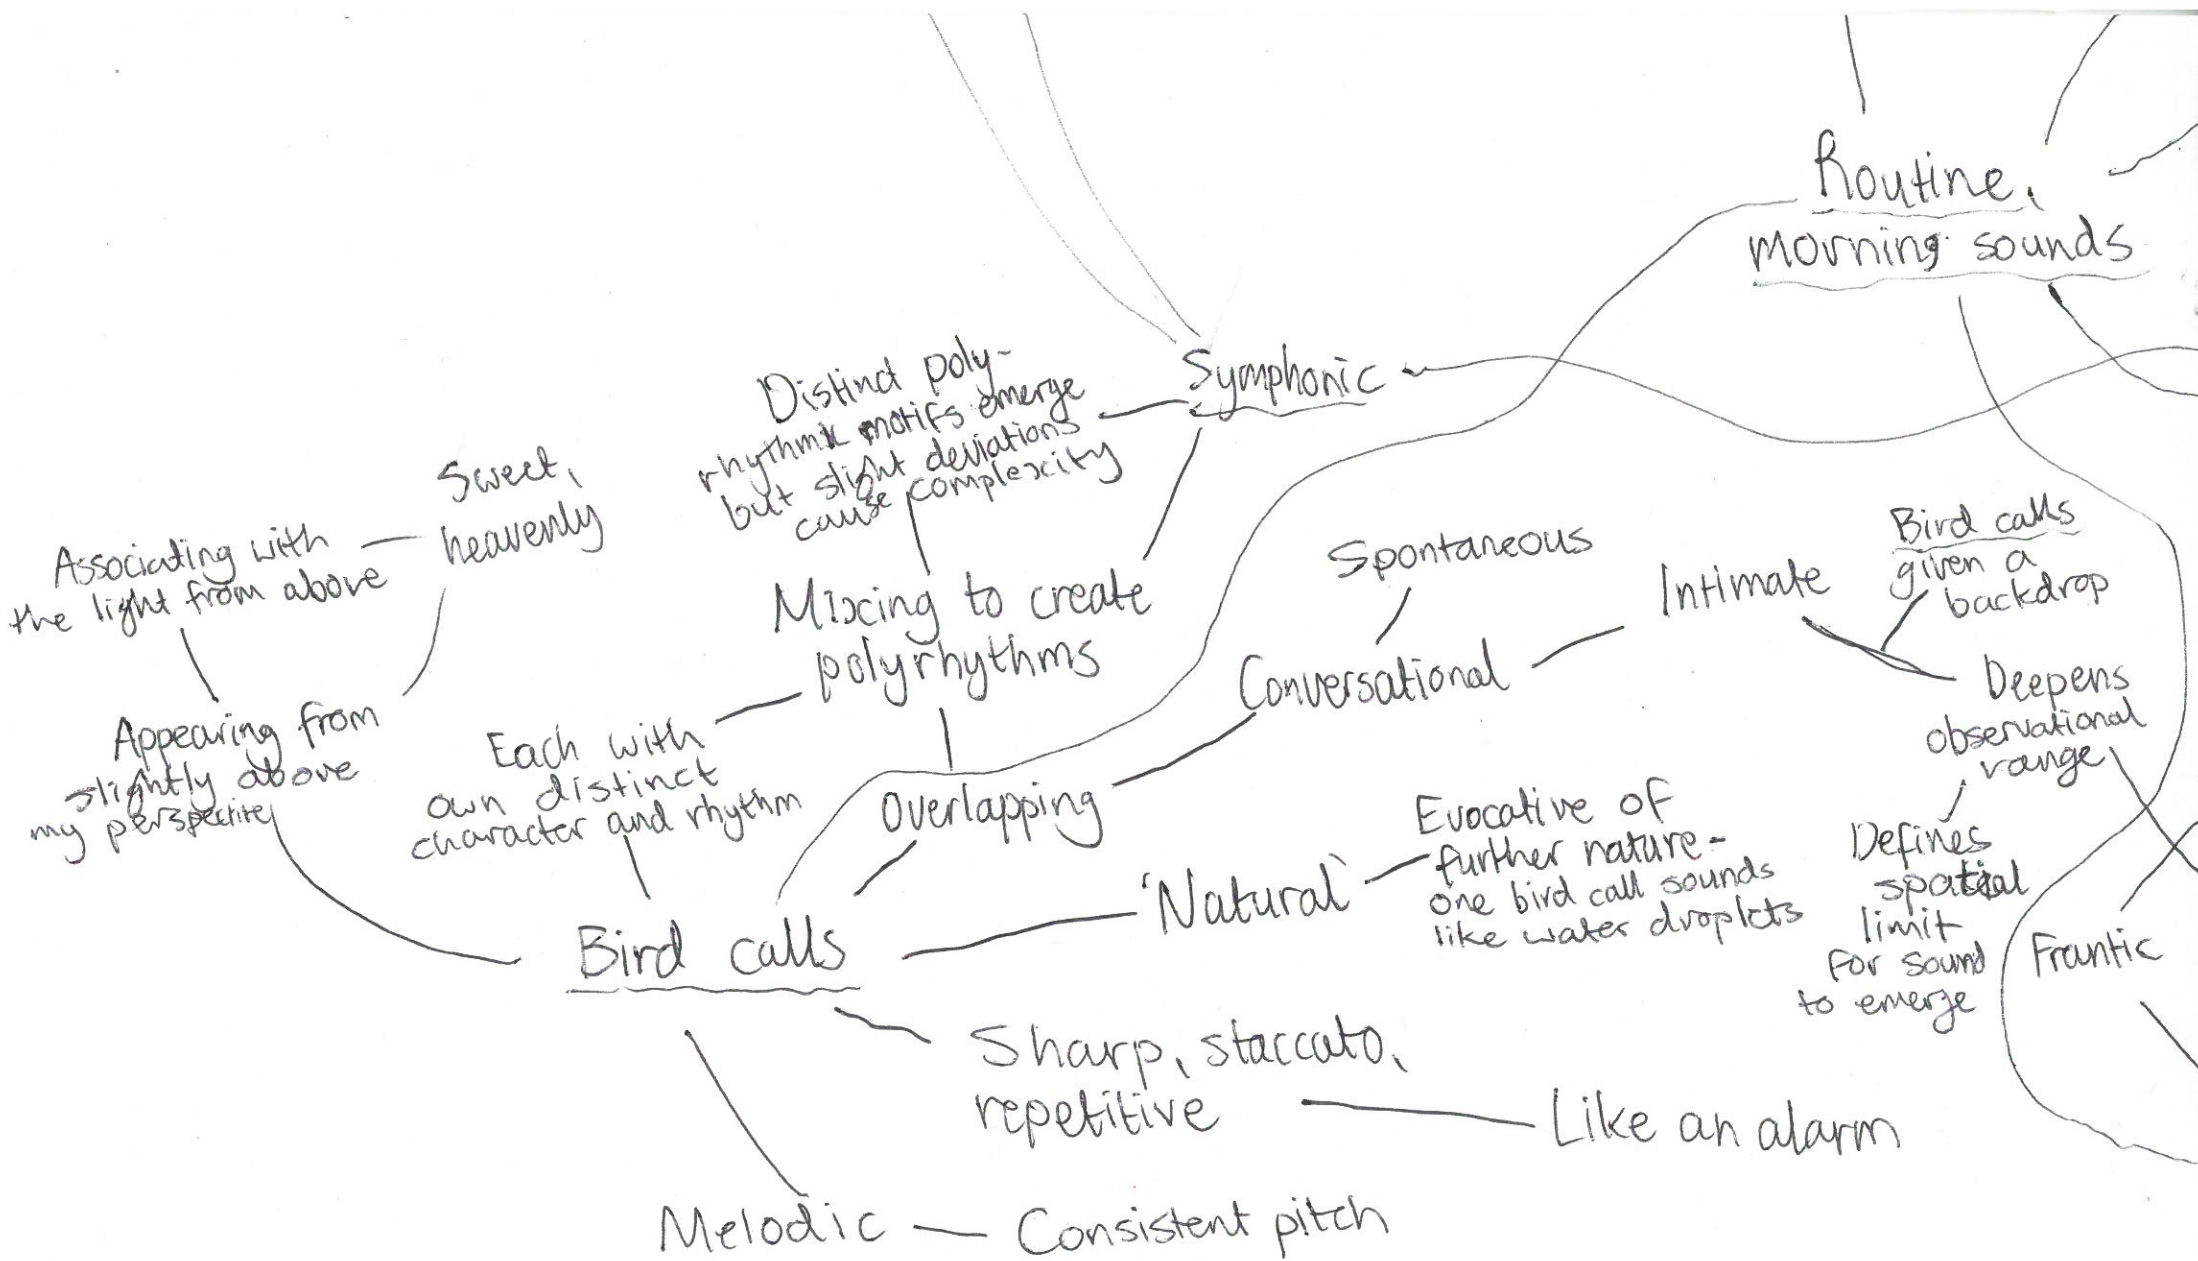 Routine,
morning sounds
Symphonic
Distinct poly-
rhythmic motifs emerge
but slight deviations
cause complexity
Sweet,
heavenly
Associating with
the light from above
Mixing to create
polyrhythms
Spontaneous
Intimate
Bird calls
given a
backdrop
Conversational
Deepens
observational
range
Appearing from
slightly above
my perspective
Each with
own distinct
character and rhythm
Overlapping
'Natural'
Evocative of
further nature-
one bird call sounds
like water droplets
Defines
spatial
limit
for sound
to emerge
Frantic
Bird calls
Sharp, staccato,
repetitive
Like an alarm
Melodic
Consistent pitch